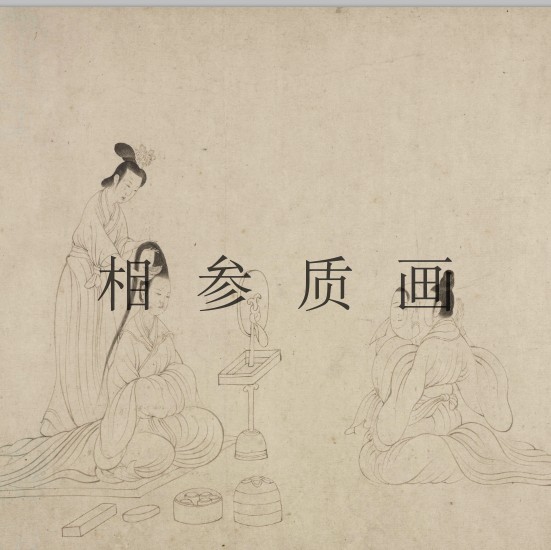 相参质画